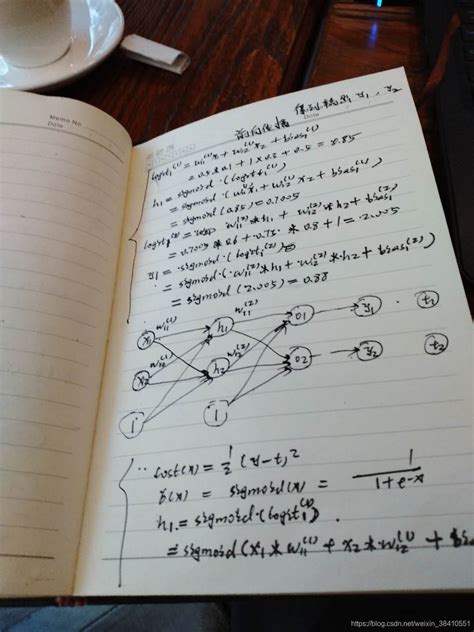 Memo No.
Date
Date
前向传播 得到输出 y₁, y₂
logit₁⁽¹⁾ = w₁₁⁽¹⁾x₁ + w₁₂⁽¹⁾x₂ + bias₁⁽¹⁾
+ 0.5 = 0.85
h₁ = sigmoid(logit₁⁽¹⁾)
= sigmoid(w₁₁⁽¹⁾x₁ + w₁₂⁽¹⁾x₂ + bias₁⁽¹⁾)
= sigmoid(0.85) = 0.7005
logit₁⁽²⁾ = w₁₁⁽²⁾*h₁ + w₁₂⁽²⁾*h₂ + bias₁⁽²⁾
= 0.7005 * 0.6 + * 0.8 + 1 = 2.005
y₁ = sigmoid(logit₁⁽²⁾)
= sigmoid(w₁₁⁽²⁾*h₁ + w₁₂⁽²⁾*h₂ + bias₁⁽²⁾)
= sigmoid(2.005) = 0.88
x₁ w₁₁⁽¹⁾ h₁ w₁₁⁽²⁾ o₁ y₁ t₁
x₂ w₁₂⁽¹⁾ h₂ w₁₂⁽²⁾ o₂ y₂ t₂
1 1
cost(x) = 1/2 (y-t)²
σ(x) = sigmoid(x) = 1/(1+e-x)
h₁ = sigmoid(logit₁⁽¹⁾)
= sigmoid(x₁*w₁₁⁽¹⁾ + x₂*w₁₂⁽¹⁾ +
https://blog.csdn.net/weixin_38410551